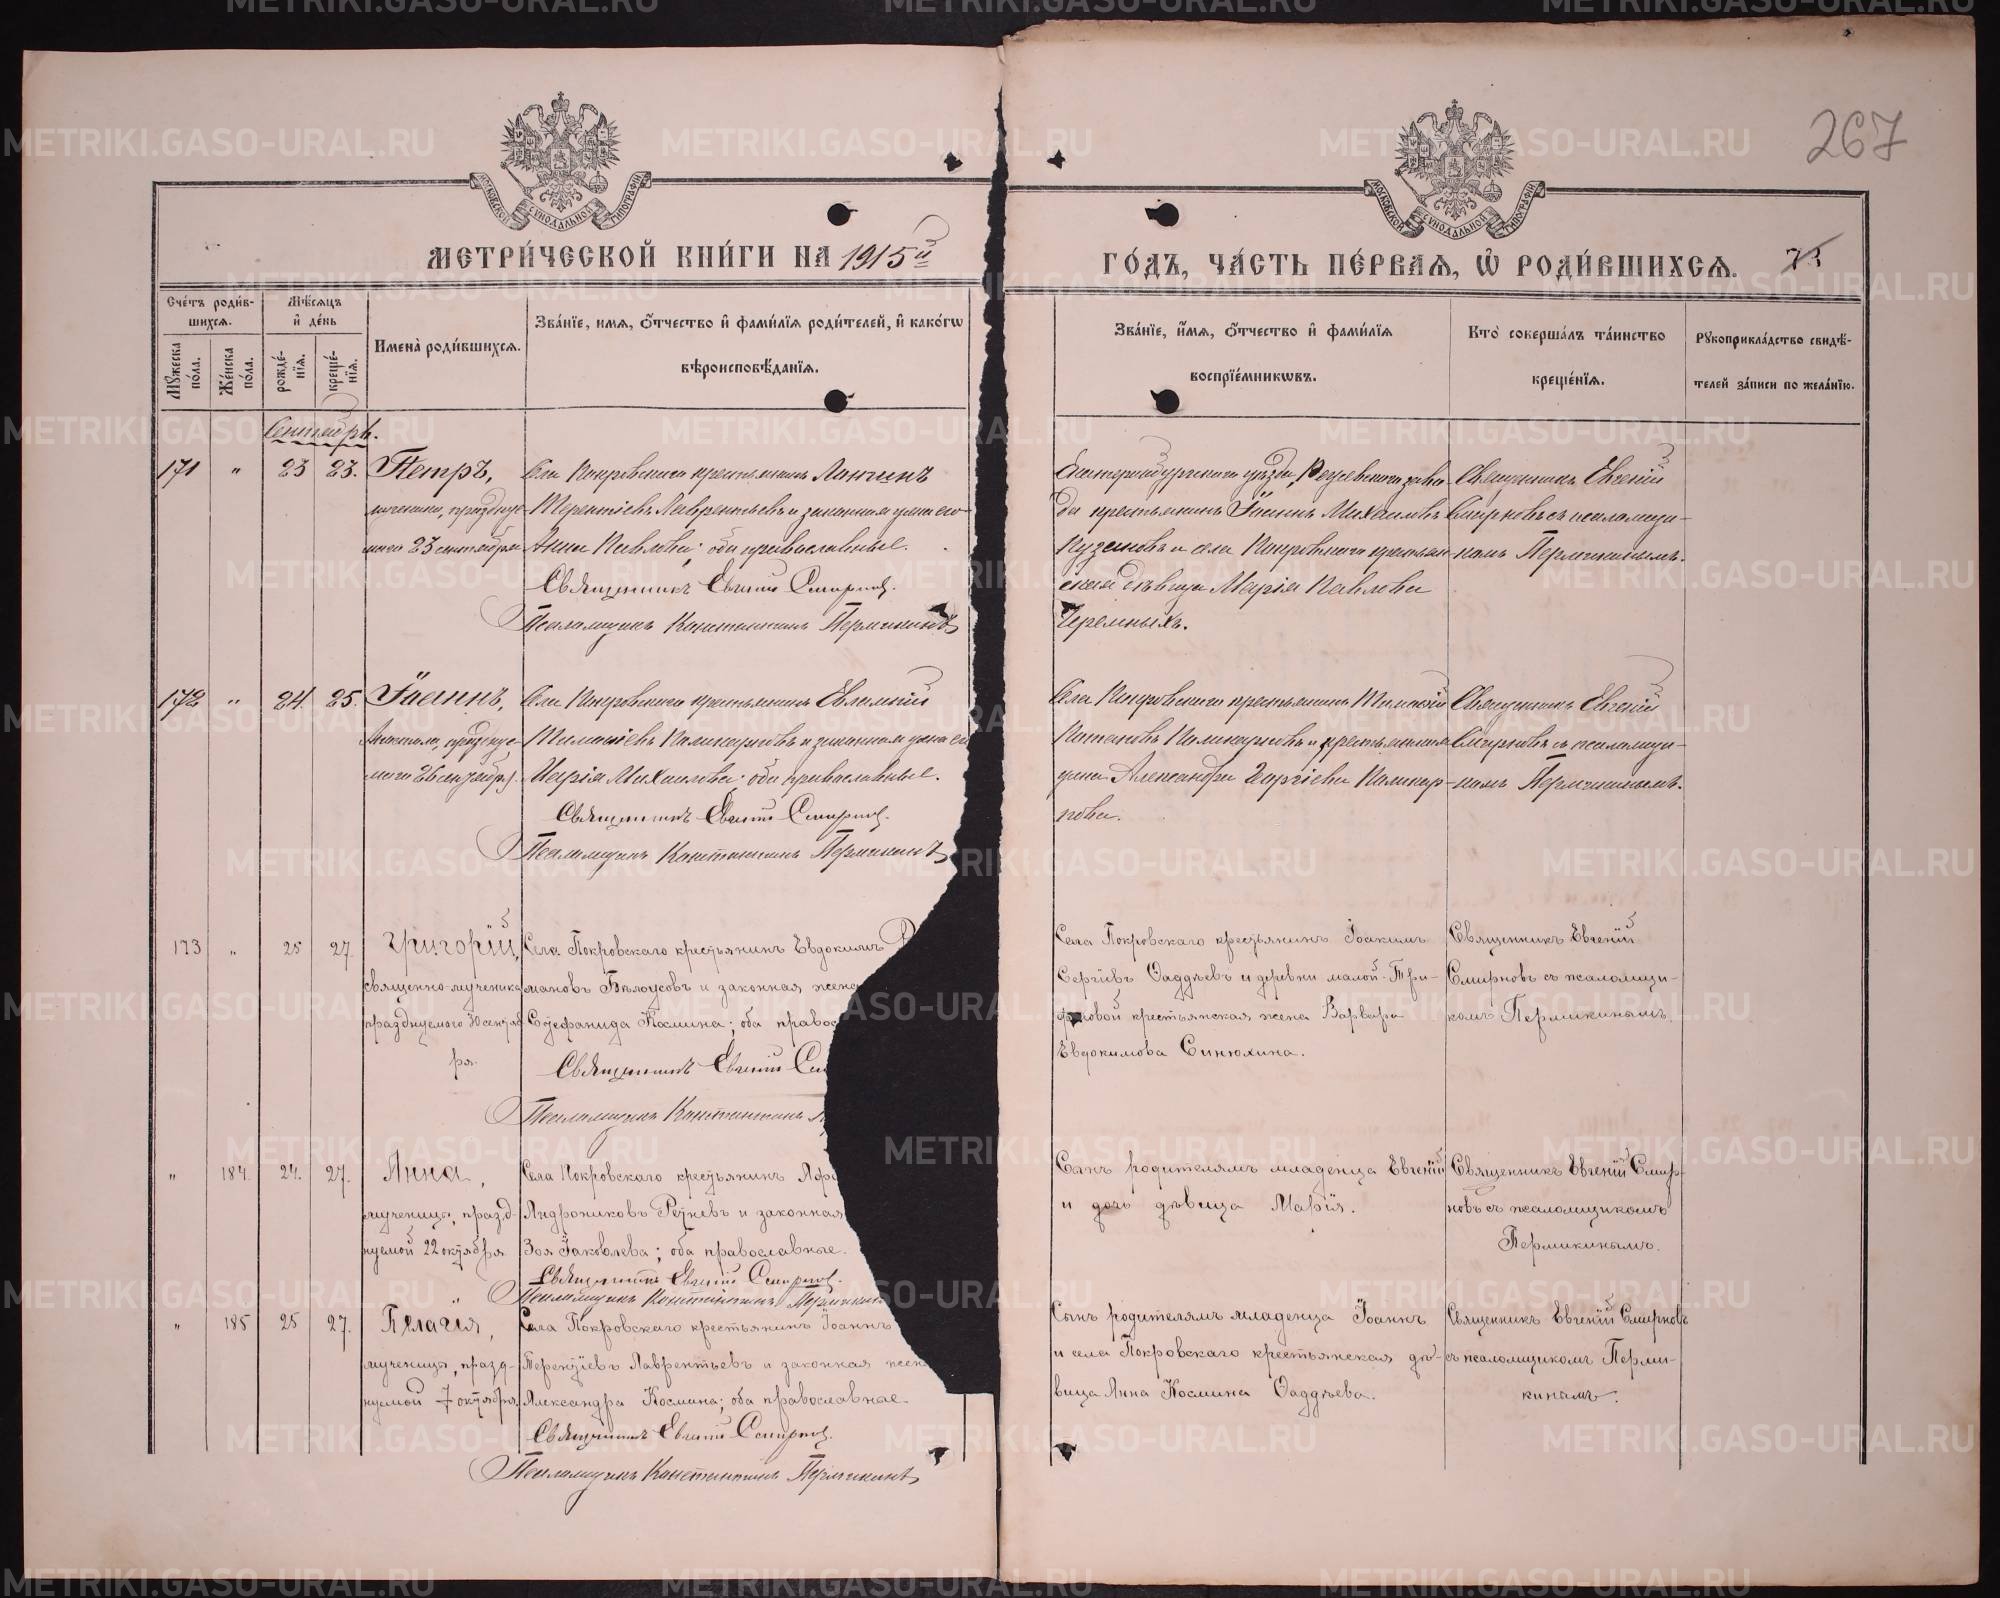 267
МОСКОВСКОЙ СѴНОДАЛЬНОЙ ТИПОГРАФІИ
МОСКОВСКОЙ СѴНОДАЛЬНОЙ ТИПОГРАФІИ
МЕТРИ́ЧЕСКОЙ КНИ́ГИ НА 1915й
ГО́ДЪ, ЧА́СТЬ ПЕ́РВАѦ, Ѽ РОДИ́ВШИХСѦ.
Сче́тъ роди́в-
шихсѧ.
Мѣ́сѧцъ
и҆ де́нь
Мꙋ́жеска по́ла.
Же́нска по́ла.
рожде́нїѧ.
креще́нїѧ.
Имена̀ роди́вшихсѧ.
Зва́нїе, имѧ, ѻ҆́тчество и҆ фами́лїѧ роди́телей, и҆ како́гѡ
вѣроисповѣ́данїѧ.
Зва́нїе, и҆́мѧ, ѻ҆́тчество и҆ фами́лїѧ
воспрїе́мникѡвъ.
Кто̀ соверша́лъ та́инство
креще́нїѧ.
Рꙋкоприкла́дство свидѣ́-
телей за́писи по жела́нїю.
Сентябрь.
171 " 23 23. Петръ,
праздную-
маго 23 сентября
Села Покровскаго крестьянинъ Логинъ
Терентіевъ Лаврентьевъ и законная жена его
Анна Павлова; оба православные.
Священникъ Евгеній Смирновъ.
Псаломщикъ Константинъ Пермикинъ
Екатеринбургскаго уѣзда, Режевскаго заво-
да крестьянинъ Іоаннъ Михаиловъ
Кузнецовъ и села Покровскаго крестьян-
ская дѣвица Марія Павлова
Черемныхъ.
Священникъ Евгеній
Смирновъ съ псаломщи-
комъ Пермикинымъ.
172 " 24. 25. Іоаннъ,
Апостола, праздную-
маго 26 сентября.
Села Покровскаго крестьянинъ Евлампій
Тимофіевъ Поликарповъ и законная жена его
Марія Михаилова; оба православные.
Священникъ Евгеній Смирновъ.
Псаломщикъ Константинъ Пермикинъ
Села Покровскаго крестьянинъ Тимофій
Поликарповъ и крестьянская
жена Александра Георгіева Поликар-
пова.
Священникъ Евгеній
Смирновъ съ псаломщи-
комъ Пермикинымъ.
173 " 25 27. Григорій,
священно-мученика
празднуемаго 30 сентяб
ря.
Села Покровскаго крестьянинъ Евдокимъ Р
мановъ Бѣлоусовъ и законная жена
Стефанида Космина; оба правос
Священникъ Евгеній См
Псаломщикъ Константинъ
Села Покровскаго крестьянинъ Іоакимъ
Сергіевъ Ѳаддѣевъ и деревни малой Три-
фоновой крестьянская жена Варвара
Евдокимова Синюхина.
Священникъ Евгеній
Смирновъ съ псаломщи-
комъ Пермикинымъ.
" 184. 24. 27. Анна,
мученицы, празд-
нуемой 22 октября
Села Покровскаго крестьянинъ
Андрониковъ Рѣпневъ и законная
Зоя Іаковлева; оба православные.
Священникъ Евгеній Смирновъ.
Псаломщикъ Константинъ Пермикинъ
Сынъ родителямъ младенца Евгеній
и дочь дѣвица Марія.
Священникъ Евгеній Смир-
новъ съ псаломщикомъ
Пермикинымъ.
" 185 25 27. Пелагія,
мученицы, празд-
нуемой 7 октября.
Села Покровскаго крестьянинъ Іоаннъ
Терентіевъ Лаврентьевъ и законная жен
Александра Космина; оба православные.
Священникъ Евгеній Смирновъ.
Псаломщикъ Константинъ Пермикинъ
Сынъ родителямъ младенца Іоаннъ
и села Покровскаго крестьянская дѣ-
вица Анна Космина Ѳаддѣева.
Священникъ Евгеній Смирновъ
съ псаломщикомъ Перми-
кинымъ.
METRIKI.GASO-URAL.RU